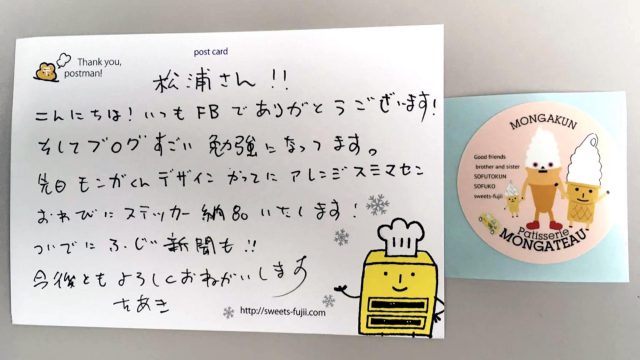 post card
Thank you,
postman!
松浦さん!!
こんにちは!いつもFBでありがとうございます!
そしてブログすごい勉強になってます。
先日モンガくんデザインかってにアレンジスミマセン
おわびにステッカー納品いたします!
ついでにふじい新聞も!!
今後ともよろしくおねがいします
ちあき
http://sweets-fujii.com
MONGAKUN
Good friends
brother and sister
SOFUTOKUN
SOFUKO
sweets-fujii
Patisserie
MONGATEAU